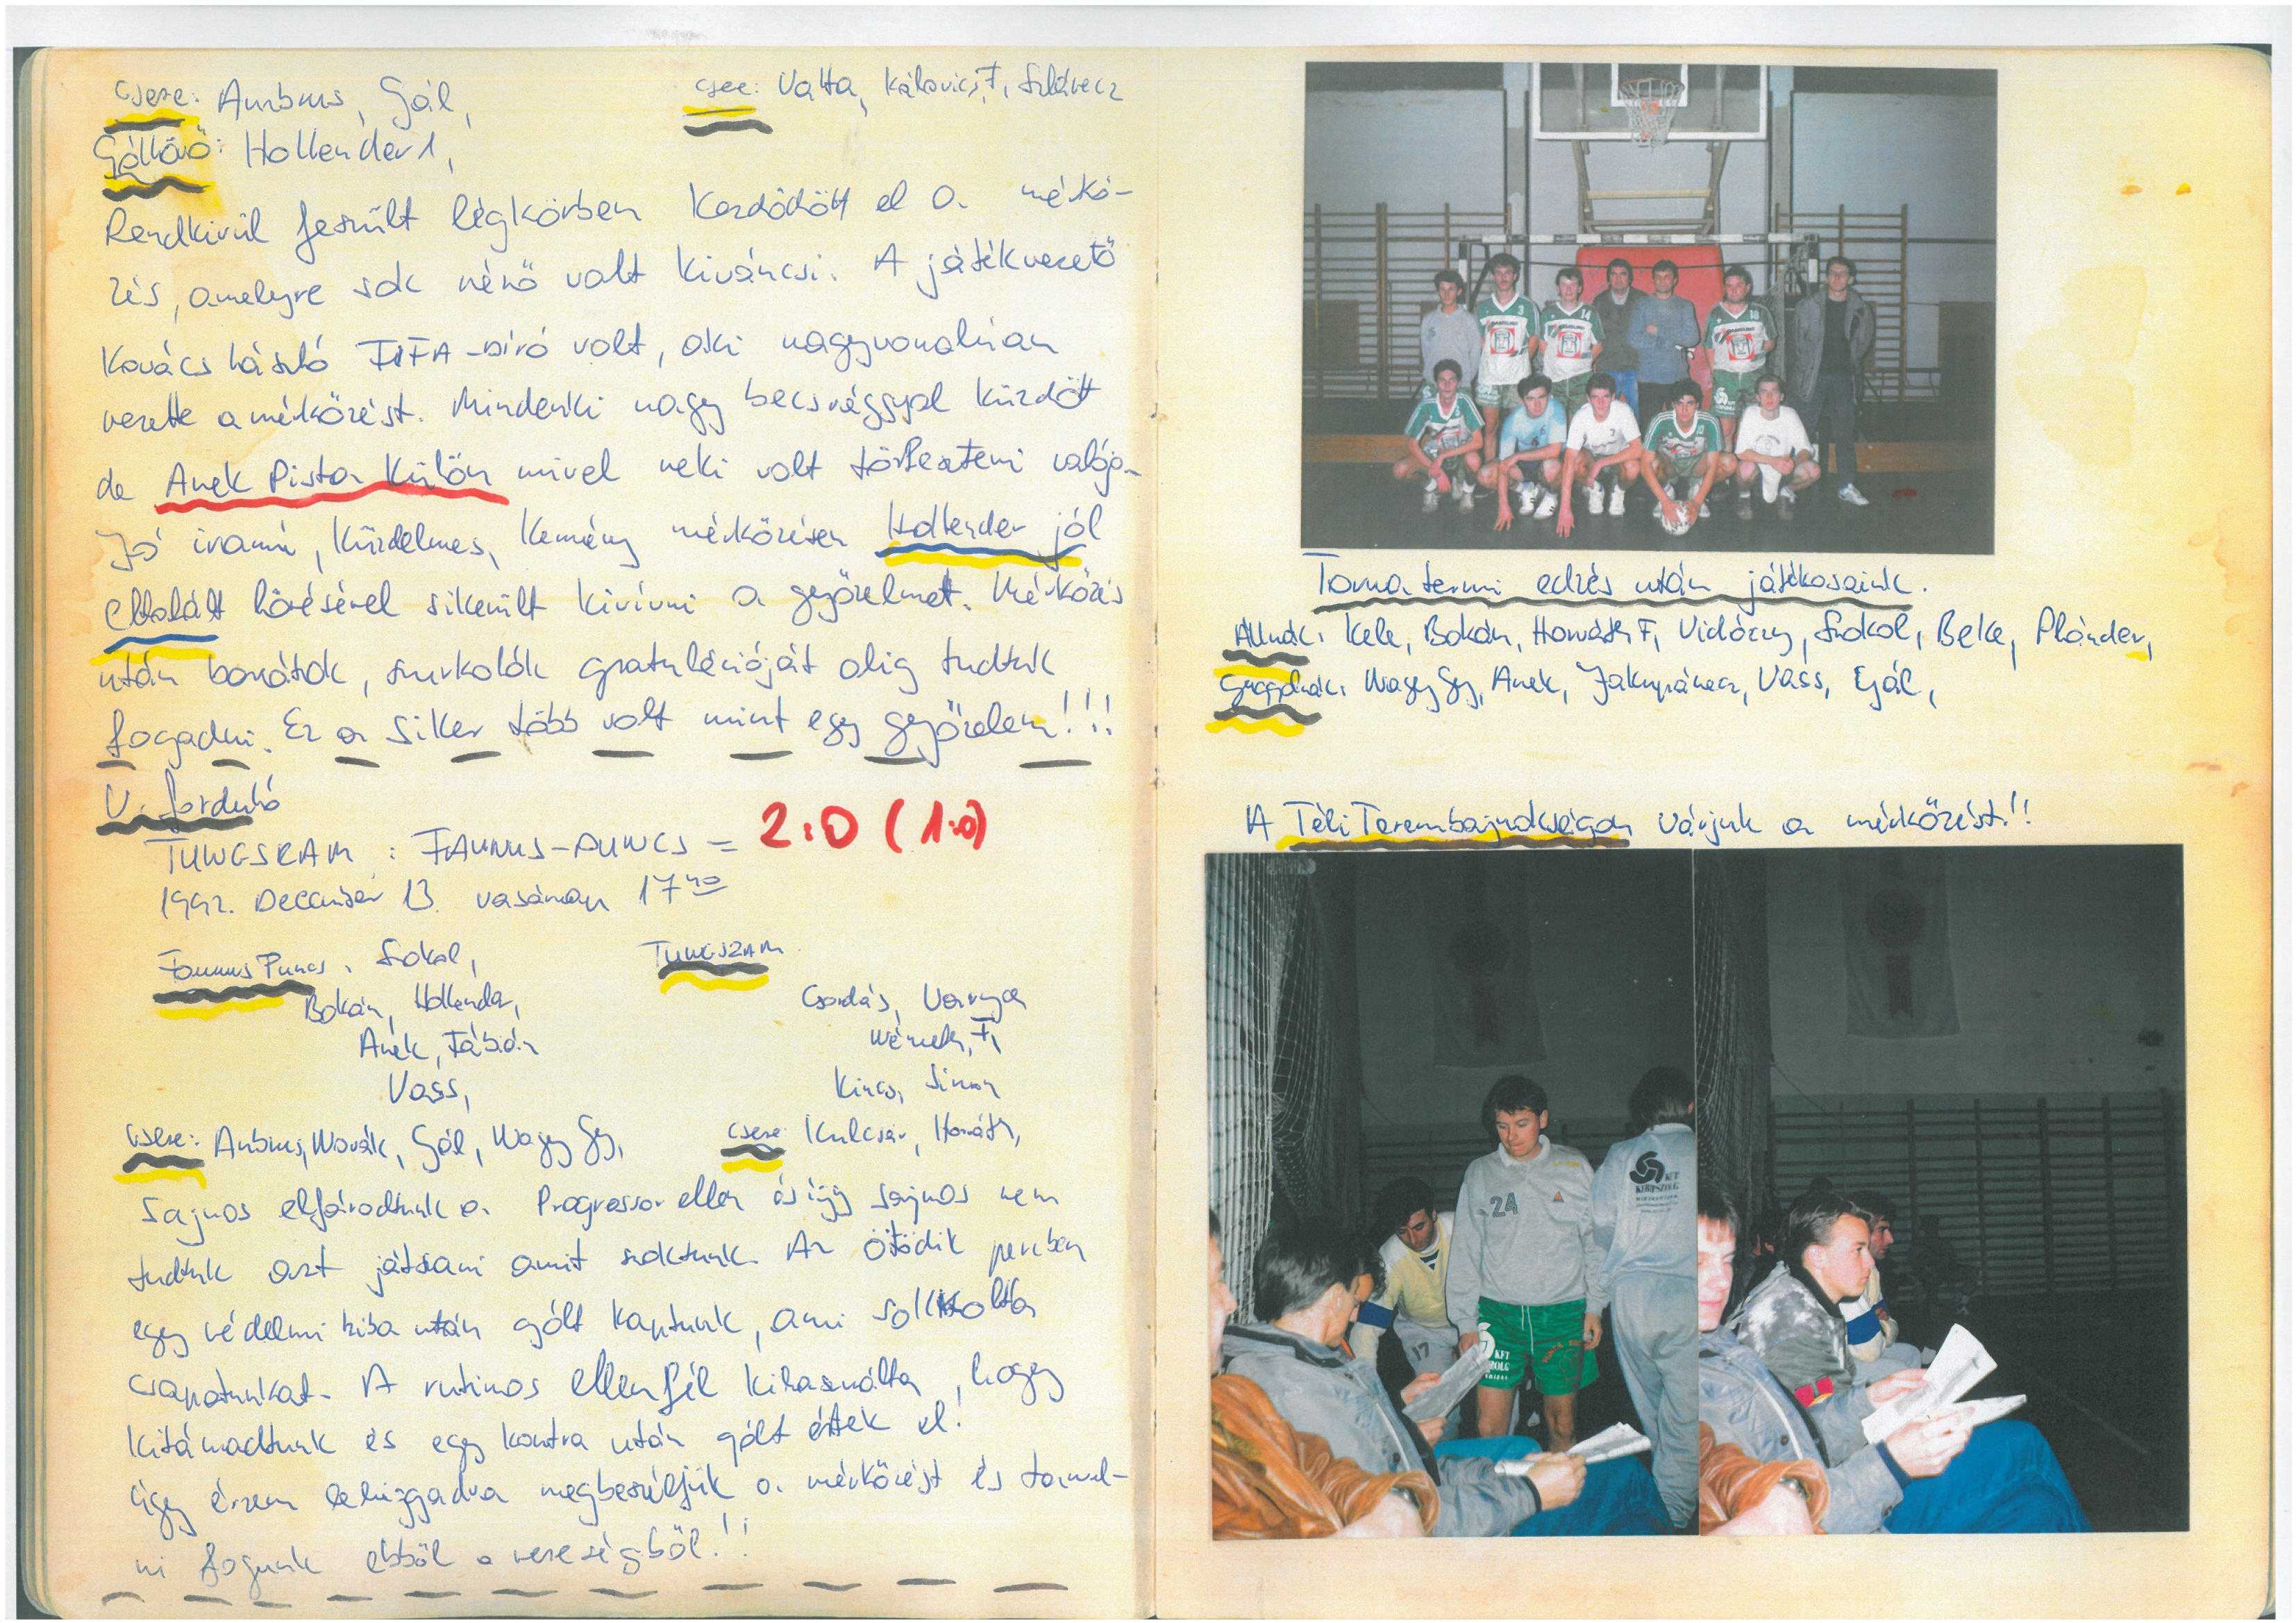 csere: Ambrus, Gál,
csere: Vatta, Kálovics, F, Szlávecz
Góllövő: Hollender 1,
Rendkivül feszült légkörben kezdődött el a mérkő-
zés, amelyre sok néző volt kiváncsi. A játékvezető
Kovács László FIFA-biró volt, aki nagyvonalúan
vezette a mérkőzést. Mindenki nagy becsvággyal küzdött
de Anek Pista külön mivel neki volt törleszteni valója.
Jó iramú, küzdelmes, kemény mérkőzésen Hollender jól
eltalált lövésével sikerült kivívni a győzelmet. Mérkőzés
után barátok, szurkolók gratulációját alig tudtuk
fogadni. Ez a siker több volt mint egy győzelem!!!
V. forduló
TUNGSRAM : FAUNUS-PUNCS = 2:0 (1:0)
1992. December 13 vasárnap 17 40
Faunus Puncs. Szokol,
Bokán, Hollender,
Anek, Fábián
Vass,
TUNGSZRAM
Csordás, Varnyca
Németh, F,
Kincs, Simon
csere: Ambrus, Novák, Gál, Nagy Gy,
csere: Kulcsár, Horváth,
Sajnos elfáradtunk a Progressor ellen és így sajnos nem
tudtuk azt játszani amit szoktunk. Az ötödik percben
egy védelmi hiba után gólt kaptunk, ami sokkolta
csapatunkat. A rutinos ellenfél kihasználta, hogy
kitámadtunk és egy kontra után gólt értek el!
Úgy érzem lehiggadva megbeszéljük a mérkőzést és tanul-
ni fogunk ebből a vereségből!!
3
14
18
Torna termi edzés után játékosaink.
Állnak: Kele, Bokán, Horváth F, Vidóczy, Szokol, Beke, Plánder,
Guggolnak: Nagy Gy, Anek, Jakupánecz, Vass, Gál,
A Téli Terembajnokságon várjuk a mérkőzést!!
2A
KFT
17
KFT